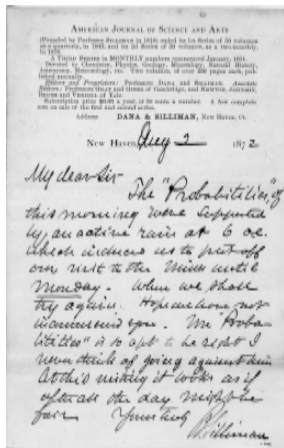 AMERICAN JOURNAL OF SCIENCE AND ARTS
(Founded by Professor SILLIMAN in 1818) ended its 1st Series of 50 volumes
as a quarterly, in 1845, and its 2d Series of 50 volumes, as a two-monthly,
in 1870.
A THIRD SERIES IN MONTHLY numbers commenced January, 1871.
Devoted to Chemistry, Physics, Geology, Mineralogy, Natural History,
Astronomy, Meteorology, etc. Two volumes, of over 450 pages each, published
annually.
Editors and Proprietors: Professors DANA and SILLIMAN. Associate
Editors: Professors GRAY and GIBBS of Cambridge, and NEWTON, JOHNSON,
BRUSH and VERRILL of Yale.
Subscription price $6.00 a year, or 50 cents a number. A few complete
sets on sale of the first and second series.
Address DANA & SILLIMAN, New Haven, Ct.
NEW HAVEN, 2 1872
My dear Sir
The "Probabilities," of
this morning were supported
by an active rain at 6 oc.
which induced us to put off
our visit to the until
Monday. When we shall
try again. Hope we have not
you. "Proba-
bilities" is so apt to be right I
never think of going against him
At this writing it looks as if
after all the day might be
fair Yours truly
B Silliman